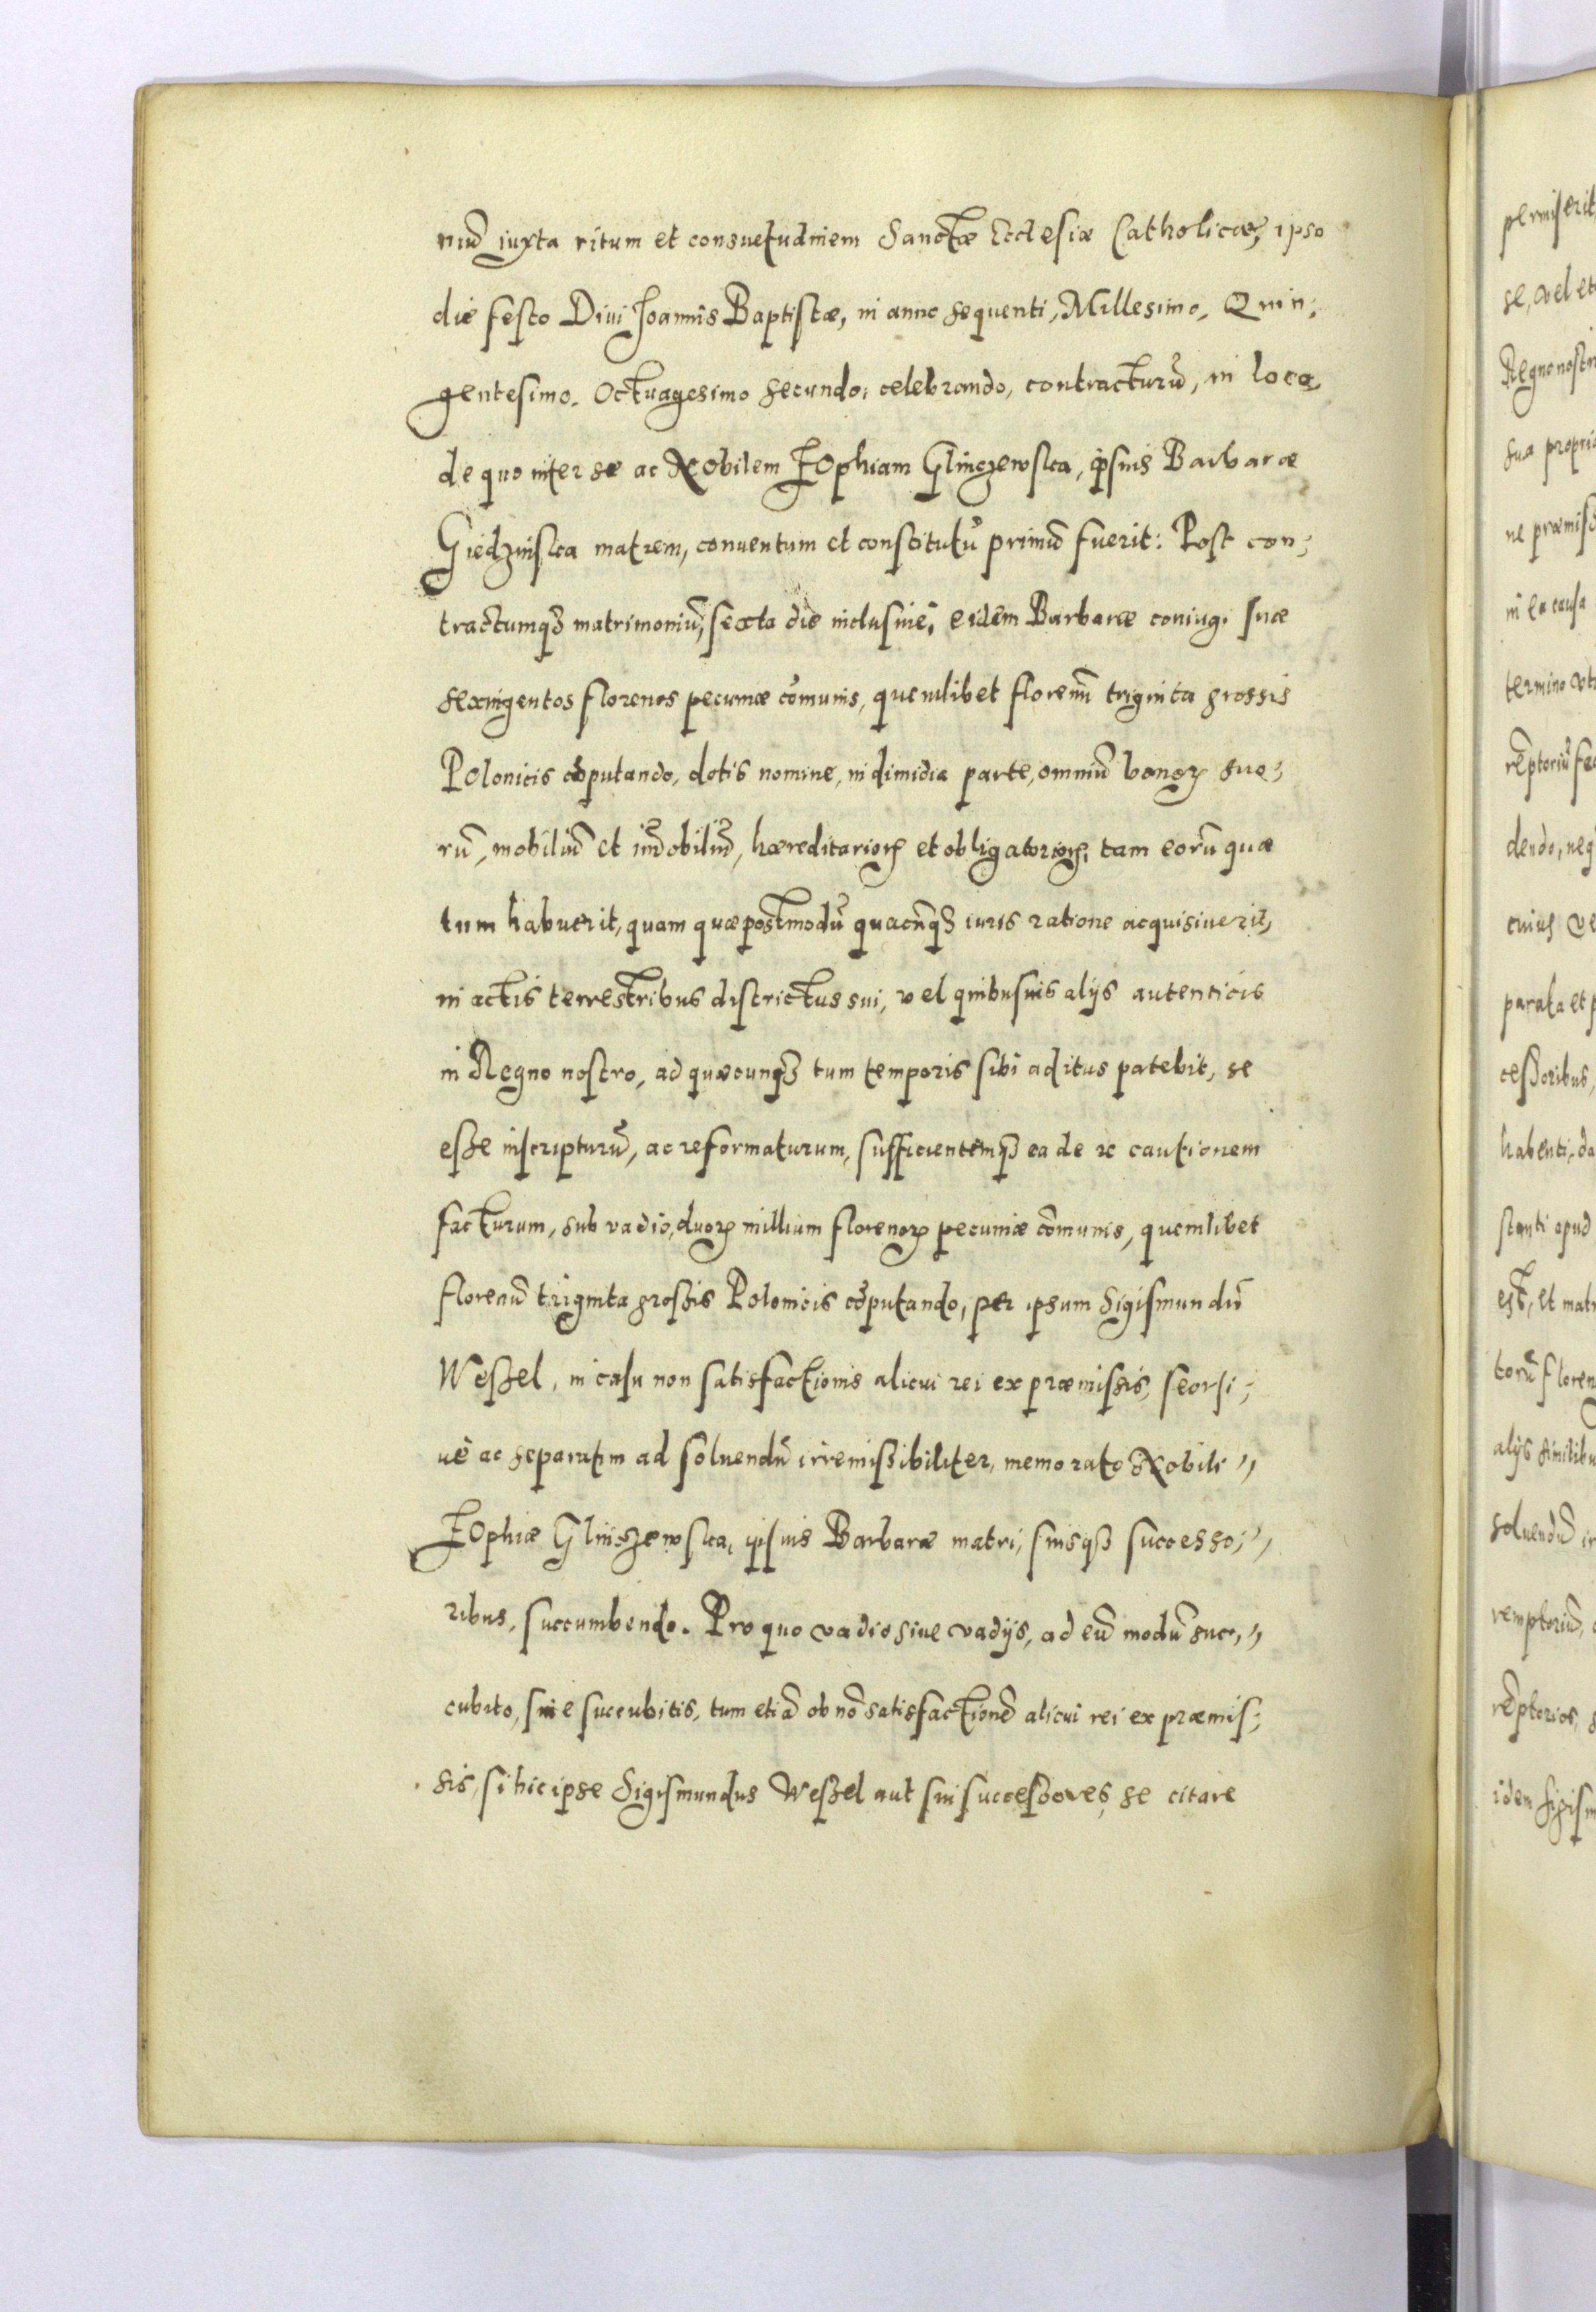 niũ iuxta ritum et consuetudinem Sanctæ Ecclesiæ Catholicæ, ipso
die festo Diui Joannis Baptistæ, in anno sequenti, Millesimo, Quin;
gentesimo. Octuagesimo secundo, celebrando, contracturũ, in loco,
de quo inter se ac Nobilem Zophiam Glinczewska, ipsius Barbaræ
Giedzinska matrem, conuentum et constitutũ primũ fuerit: Post con;
tractumqꝫ matrimoniũ, sexta die inclusiuè, eidẽm Barbaræ coniugi suæ
sexingentos florenos pecuniæ cõmunis, quemlibet florenũ triginta grossis
Polonicis cõputando, dotis nomine, in dimidia parte, omniũ bonoꝝ suo;
rũ, mobiliũ et im̃obiliũ, hæreditarioꝝ et obligatorioꝝ, tam eorũ quæ
tum habuerit, quam quæ postmodũ quacũqꝫ iuris ratione acquisiuerit,
in actis terrestribus districtus sui, vel quibusuis alijs autenticis
in Regno nostro, ad quæcunqꝫ tum temporis sibi aditus patebit, se
esse inscripturũ, ac reformaturum, sufficientemqꝫ ea de re cautionem
facturum, sub vadio, duoꝝ millium florenoꝝ pecuniæ cõmunis, quemlibet
florenũ triginta grossis Polonicis cõputando, per ipsum Sigismundũ
Wessel, in casu non satisfactionis alicui rei ex præmissis, seorsi;
uè ac separatim ad soluendũ irremissibiliter, memoratæ Nobili
Zophiæ Glinczewska, ipsius Barbaræ matri, suisqꝫ successo;
ribus, succumbendo. Pro quo vadio siue vadijs, ad eũ modũ suc,
cubito, siue succubitis, tum etiã ob nõ satisfactionẽ alicui rei ex præmis;
sis, si hic ipse Sigismundus Wessel aut sui successores, se citare
permiserit
se, vel et
Regno nostro
sua propria
ne præmiss
in ea causa
termino
rẽptoriũ
dendo, neq
cuius ve
parata et p
cessoribus,
habenti, da
stanti apud
est, et matr
torũ floren
alijs similibu
soluendũ ir
remptoriũ,
rẽptorios,
idem Sigism